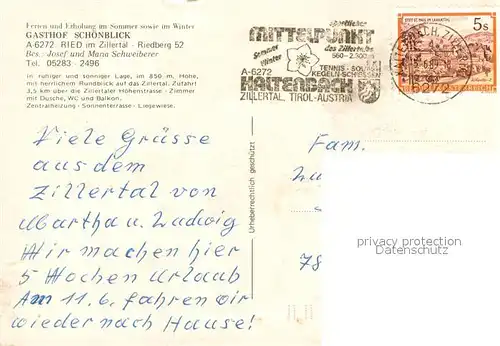 Ferien und Erholung im Sommer sowie im Winter
GASTHOF SCHÖNBLICK
A-6272 RIED im Zillertal - Riedberg 52
Bes. Josef und Maria Schweiberer
Tel. 05283 - 2496
In ruhiger und sonniger Lage, im 850 m, Höhe
mit herrlichem Rundblick auf das Zillertal. Zufahrt
3,5 km über die Zillertaler Höhenstrasse - Zimmer
mit Dusche, WC und Balkon.
Zentralheizung - Sonnenterrasse - Liegewiese.
Viele Grüsse
aus dem
Zillertal von
Martha u. Ludwig
Wir machen hier
5 Wochen Urlaub
Am 11.6. fahren wir
wieder nach Hause!
Urheberrechtlich geschützt
sportlicher
MITTELPUNKT
des Zillertales
Sommer
Winter
560-2.300 m
TENNIS-SQUASH
KEGELN-SCHIESSEN
A-6272
KALTENBACH
ZILLERTAL, TIROL-AUSTRIA
STIFT ST. PAUL IM LAVANTTAL
5s
6272
Fam.
78
privacy protection
Datenschutz